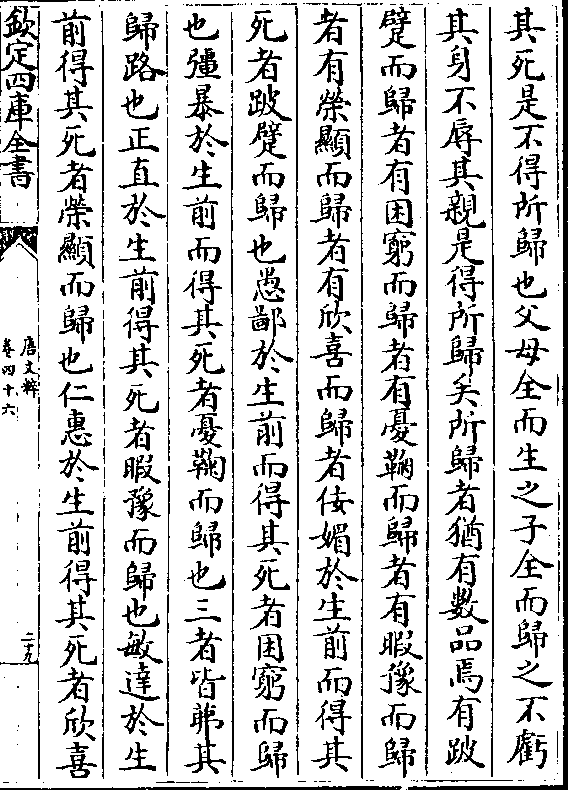 其死是不得所歸也父母全而生之子全而歸之不虧
其身不辱其親是得所歸矣所歸者猶有數品焉有跛
躄而歸者有困窮而歸者有憂鞠而歸者有暇豫而歸
者有榮顯而歸者有欣喜而歸者佞媚於生前而得其
死者跛躄而歸也愆鄙於生前而得其死者困窮而歸
也彊暴於生前而得其死者憂鞠而歸也三者皆非其
歸路也正直於生前得其死者暇豫而歸也敏達於生
前得其死者榮顯而歸也仁惠於生前得其死者欣喜
欽定四庫全書
唐文粹
卷四十六
二十九